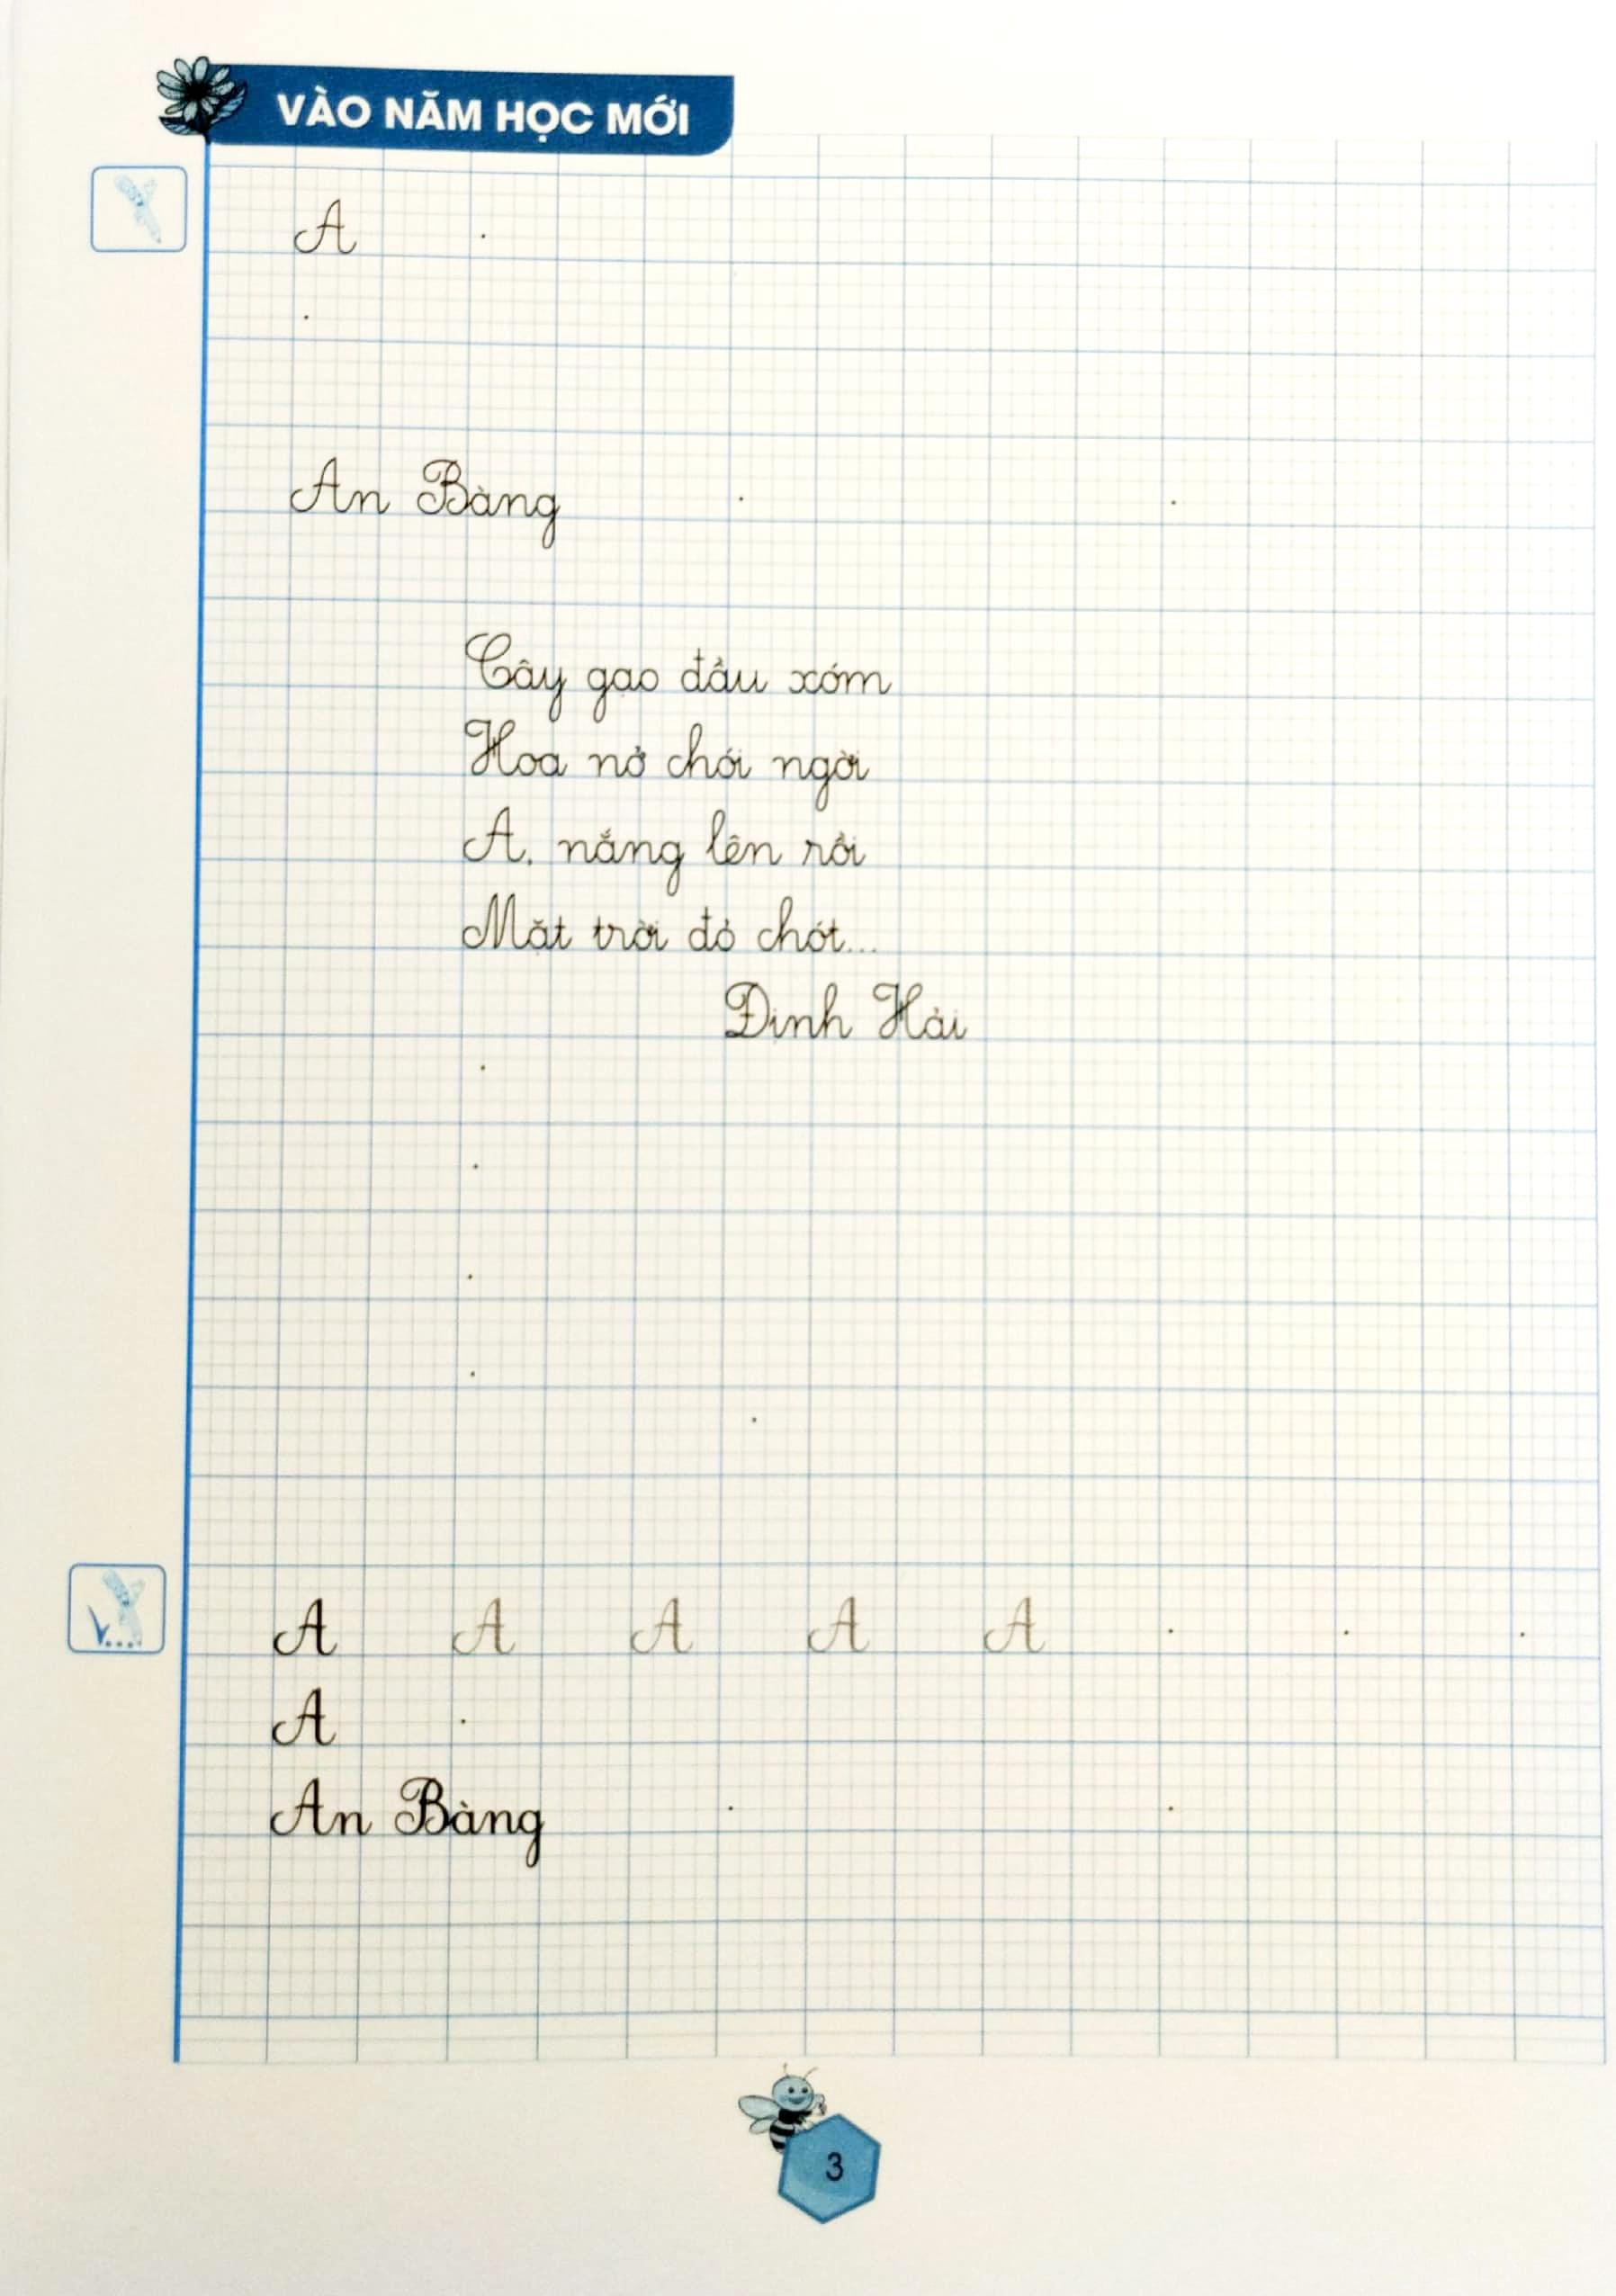 VÀO NĂM HỌC MỚI
A
An Bàng
Cây gạo đầu xóm
Hoa nở chói ngời
A, nắng lên rồi
Mặt trời đỏ chót...
Định Hải
A A A A A
A
An Bàng
3